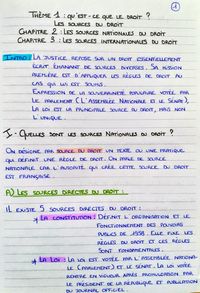 1
THÈME 1 : QU'EST-CE QUE LE DROIT ?
LES SOURCES DU DROIT
CHAPITRE 2 : LES SOURCES NATIONALES DU DROIT
CHAPITRE 3 : LES SOURCES INTERNATIONALES DU DROIT
INTRO : LA JUSTICE, REPOSE SUR UN DROIT ESSENTIELLEMENT
ÉCRIT ÉMANANT DE SOURCES DIVERSES. SA MISSION
PREMIÈRE EST D'APPLIQUER LES RÈGLES DE DROIT AU
CAS QUI LUI EST SOUMIS.
EXPRESSION DE LA SOUVERAINETÉ POPULAIRE VOTÉE PAR
LE PARLEMENT (L'ASSEMBLÉE NATIONALE ET LE SÉNAT),
LA LOI EST LA PRINCIPALE SOURCE DU DROIT, MAIS NON
L'UNIQUE.
I - QUELLES SONT LES SOURCES NATIONALES DU DROIT ?
ON DÉSIGNE PAR SOURCE DU DROIT UN TEXTE OU UNE PRATIQUE
QUI DÉFINIT UNE RÈGLE DE DROIT. ON PARLE DE SOURCE
NATIONALE CAR L'AUTORITÉ QUI CRÉE CETTE SOURCE DU DROIT
EST FRANÇAISE.
A) LES SOURCES DIRECTES DU DROIT :
IL EXISTE 5 SOURCES DIRECTES DU DROIT :
LA CONSTITUTION : DÉFINIT L'ORGANISATION ET LE
FONCTIONNEMENT DES POUVOIRS
PUBLICS DE 1958. ELLE FIXE LES
RÈGLES DU DROIT ET CES RÈGLES
SONT FONDAMENTALES.
LA LOI : LA LOI EST VOTÉE PAR L'ASSEMBLÉE NATIONA-
LE (PARLEMENT) ET LE SÉNAT. LA LOI VOTÉE
RENTRE EN VIGUEUR APRÈS PROMULGATION PAR
LE PRÉSIDENT DE LA RÉPUBLIQUE ET PUBLICATION
AU JOURNAL OFFICIEL